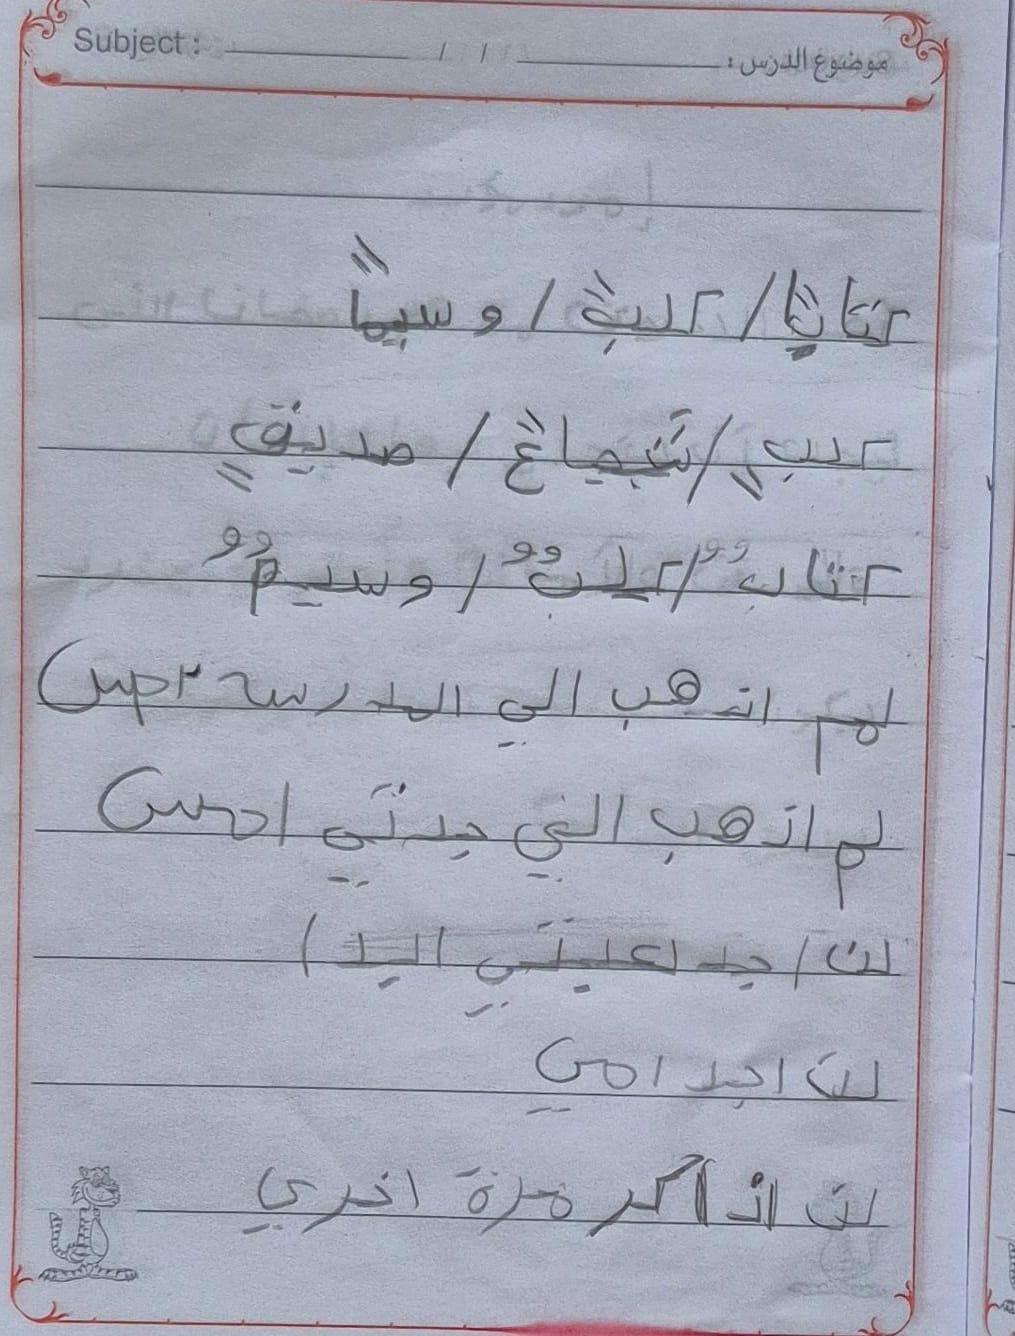 Subject : / / موضوع الدرس :
كتابًا / كلبً / وسيمًا
كلبٍ / شجاعً / صديقٍ
كتابٌ / كلبٌ / وسيمٌ
لم اذهب الي المدرسه امس
لم اذهب الي جدتي امس
لن اجد لعبتي اليد ا
لن اجد امي
لن اذاكر مرة اخري